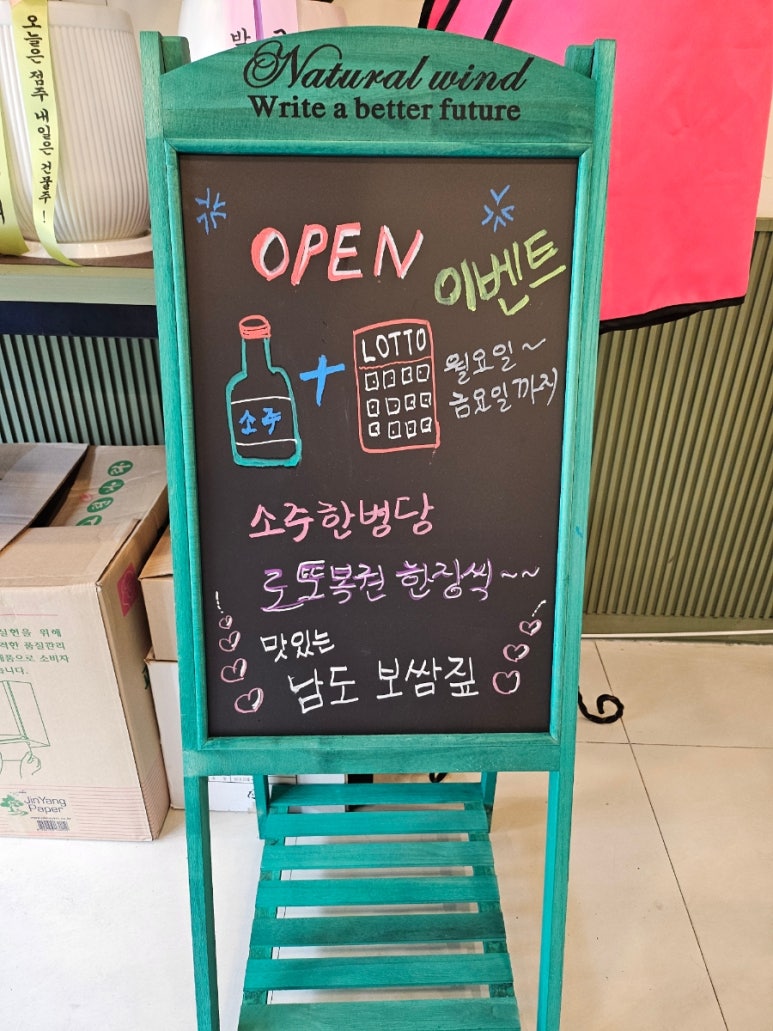 오늘은 점주 내일은 건물주!
Natural wind
Write a better future
OPEN
이벤트
소주
+
LOTTO
월요일~
금요일까지
소주한병당
로또복권 한장씩~~
맛있는
남도 보쌈짚
위해
품질관리
소비자
JinYang
Paper